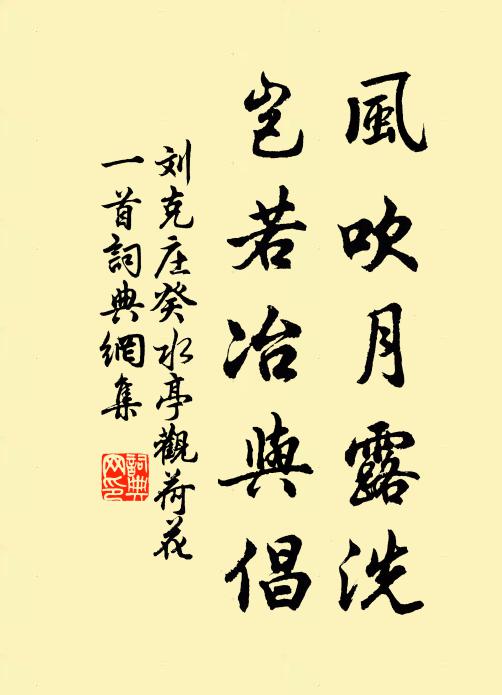 風吹月露洗
岂若冶與倡
刘克庄癸水亭觀荷花
一首詞典網集
詞典网印